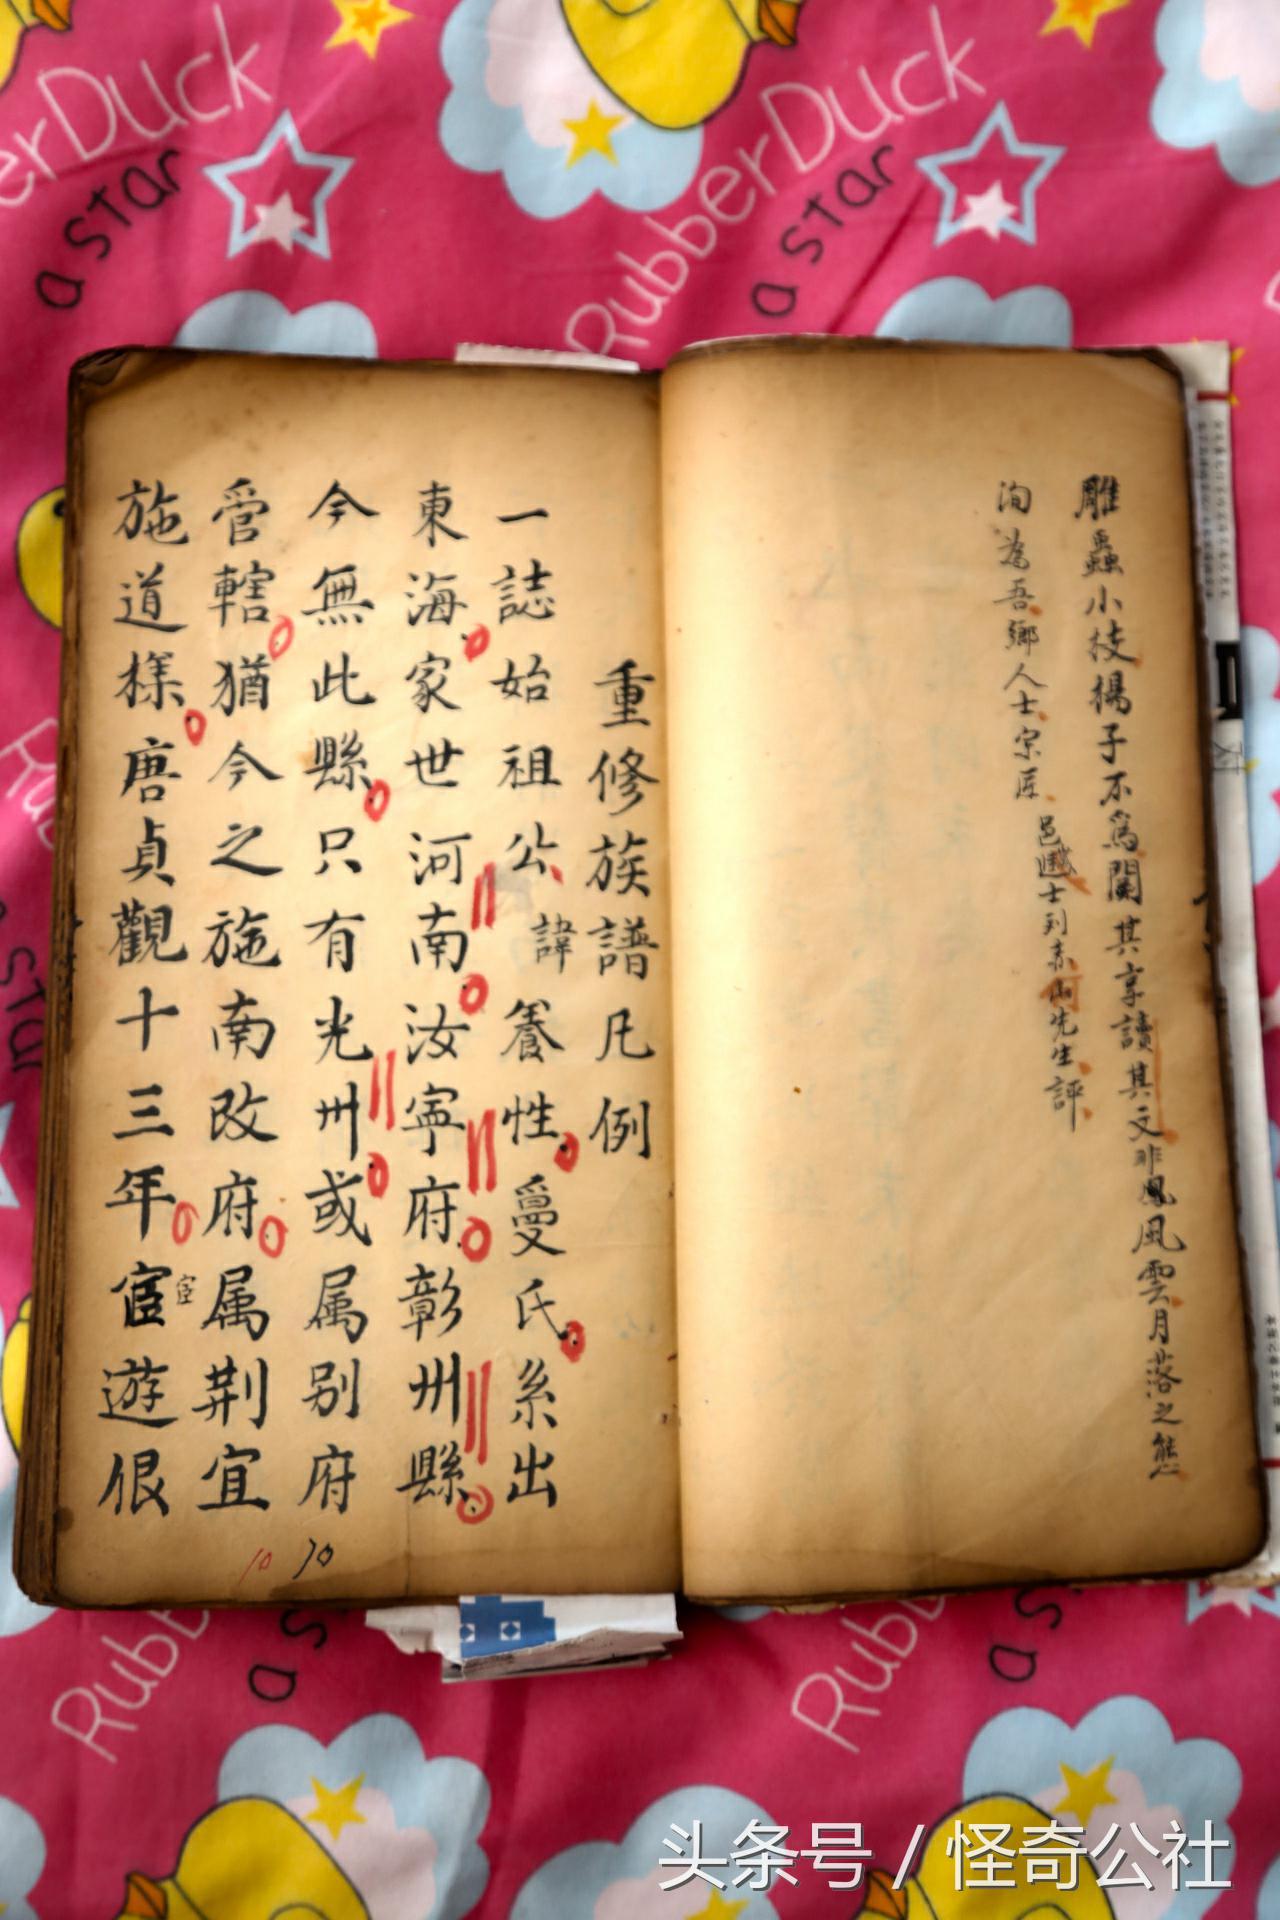 RubberDuck
a star
RubberDuck
a star
雕蟲小技楊子不爲闌其享讀其文非風風雲月落之態
洵為吾鄉人士宗匠
邑進士列素山先生評
重修族譜凡例
一誌始祖公諱養性㝧氏系出
東海家世河南汝寧府彰州縣
今無此縣只有光州或属别府
管轄猶今之施南改府属荆宜
施道樣唐貞觀十三年宦遊俍
宦
10
10
头条号 / 怪奇公社